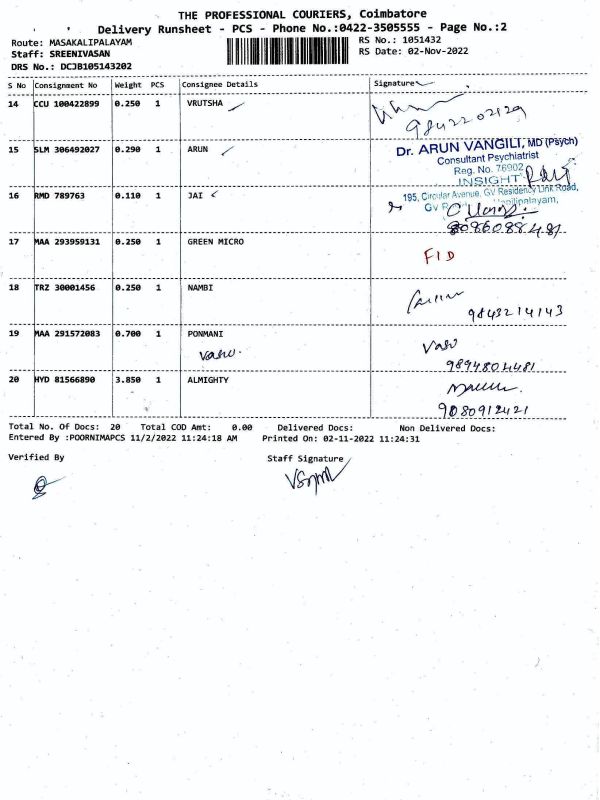 THE PROFESSIONAL COURIERS, Coimbatore
Delivery Runsheet - PCS - Phone No.:0422-3505555 - Page No.:2
Route: MASAKALIPALAYAM RS No.: 1051432
Staff: SREENIVASAN RS Date: 02-Nov-2022
DRS No.: DCJB105143202
S No Consignment No Weight PCS Consignee Details Signature
14 CCU 100422899 0.250 1 VRUTSHA
9842202129
15 SLM 306492027 0.290 1 ARUN
Dr. ARUN VANGILI, MD (Psych)
Consultant Psychiatrist
Reg. No. 76902
INSIGHT
16 RMD 789763 0.110 1 JAI
195, Circular Avenue, GV Residency Link Road,
17 MAA 293959131 0.250 1 GREEN MICRO
FID
18 TRZ 30001456 0.250 1 NAMBI
9843214143
19 MAA 291572083 0.700 1 PONMANI
Vasu. Vasu
9894804481
20 HYD 81566890 3.850 1 ALMIGHTY
9080912421
Total No. Of Docs: 20 Total COD Amt: 0.00 Delivered Docs: Non Delivered Docs:
Entered By :POORNIMAPCS 11/2/2022 11:24:18 AM Printed On: 02-11-2022 11:24:31
Verified By Staff Signature